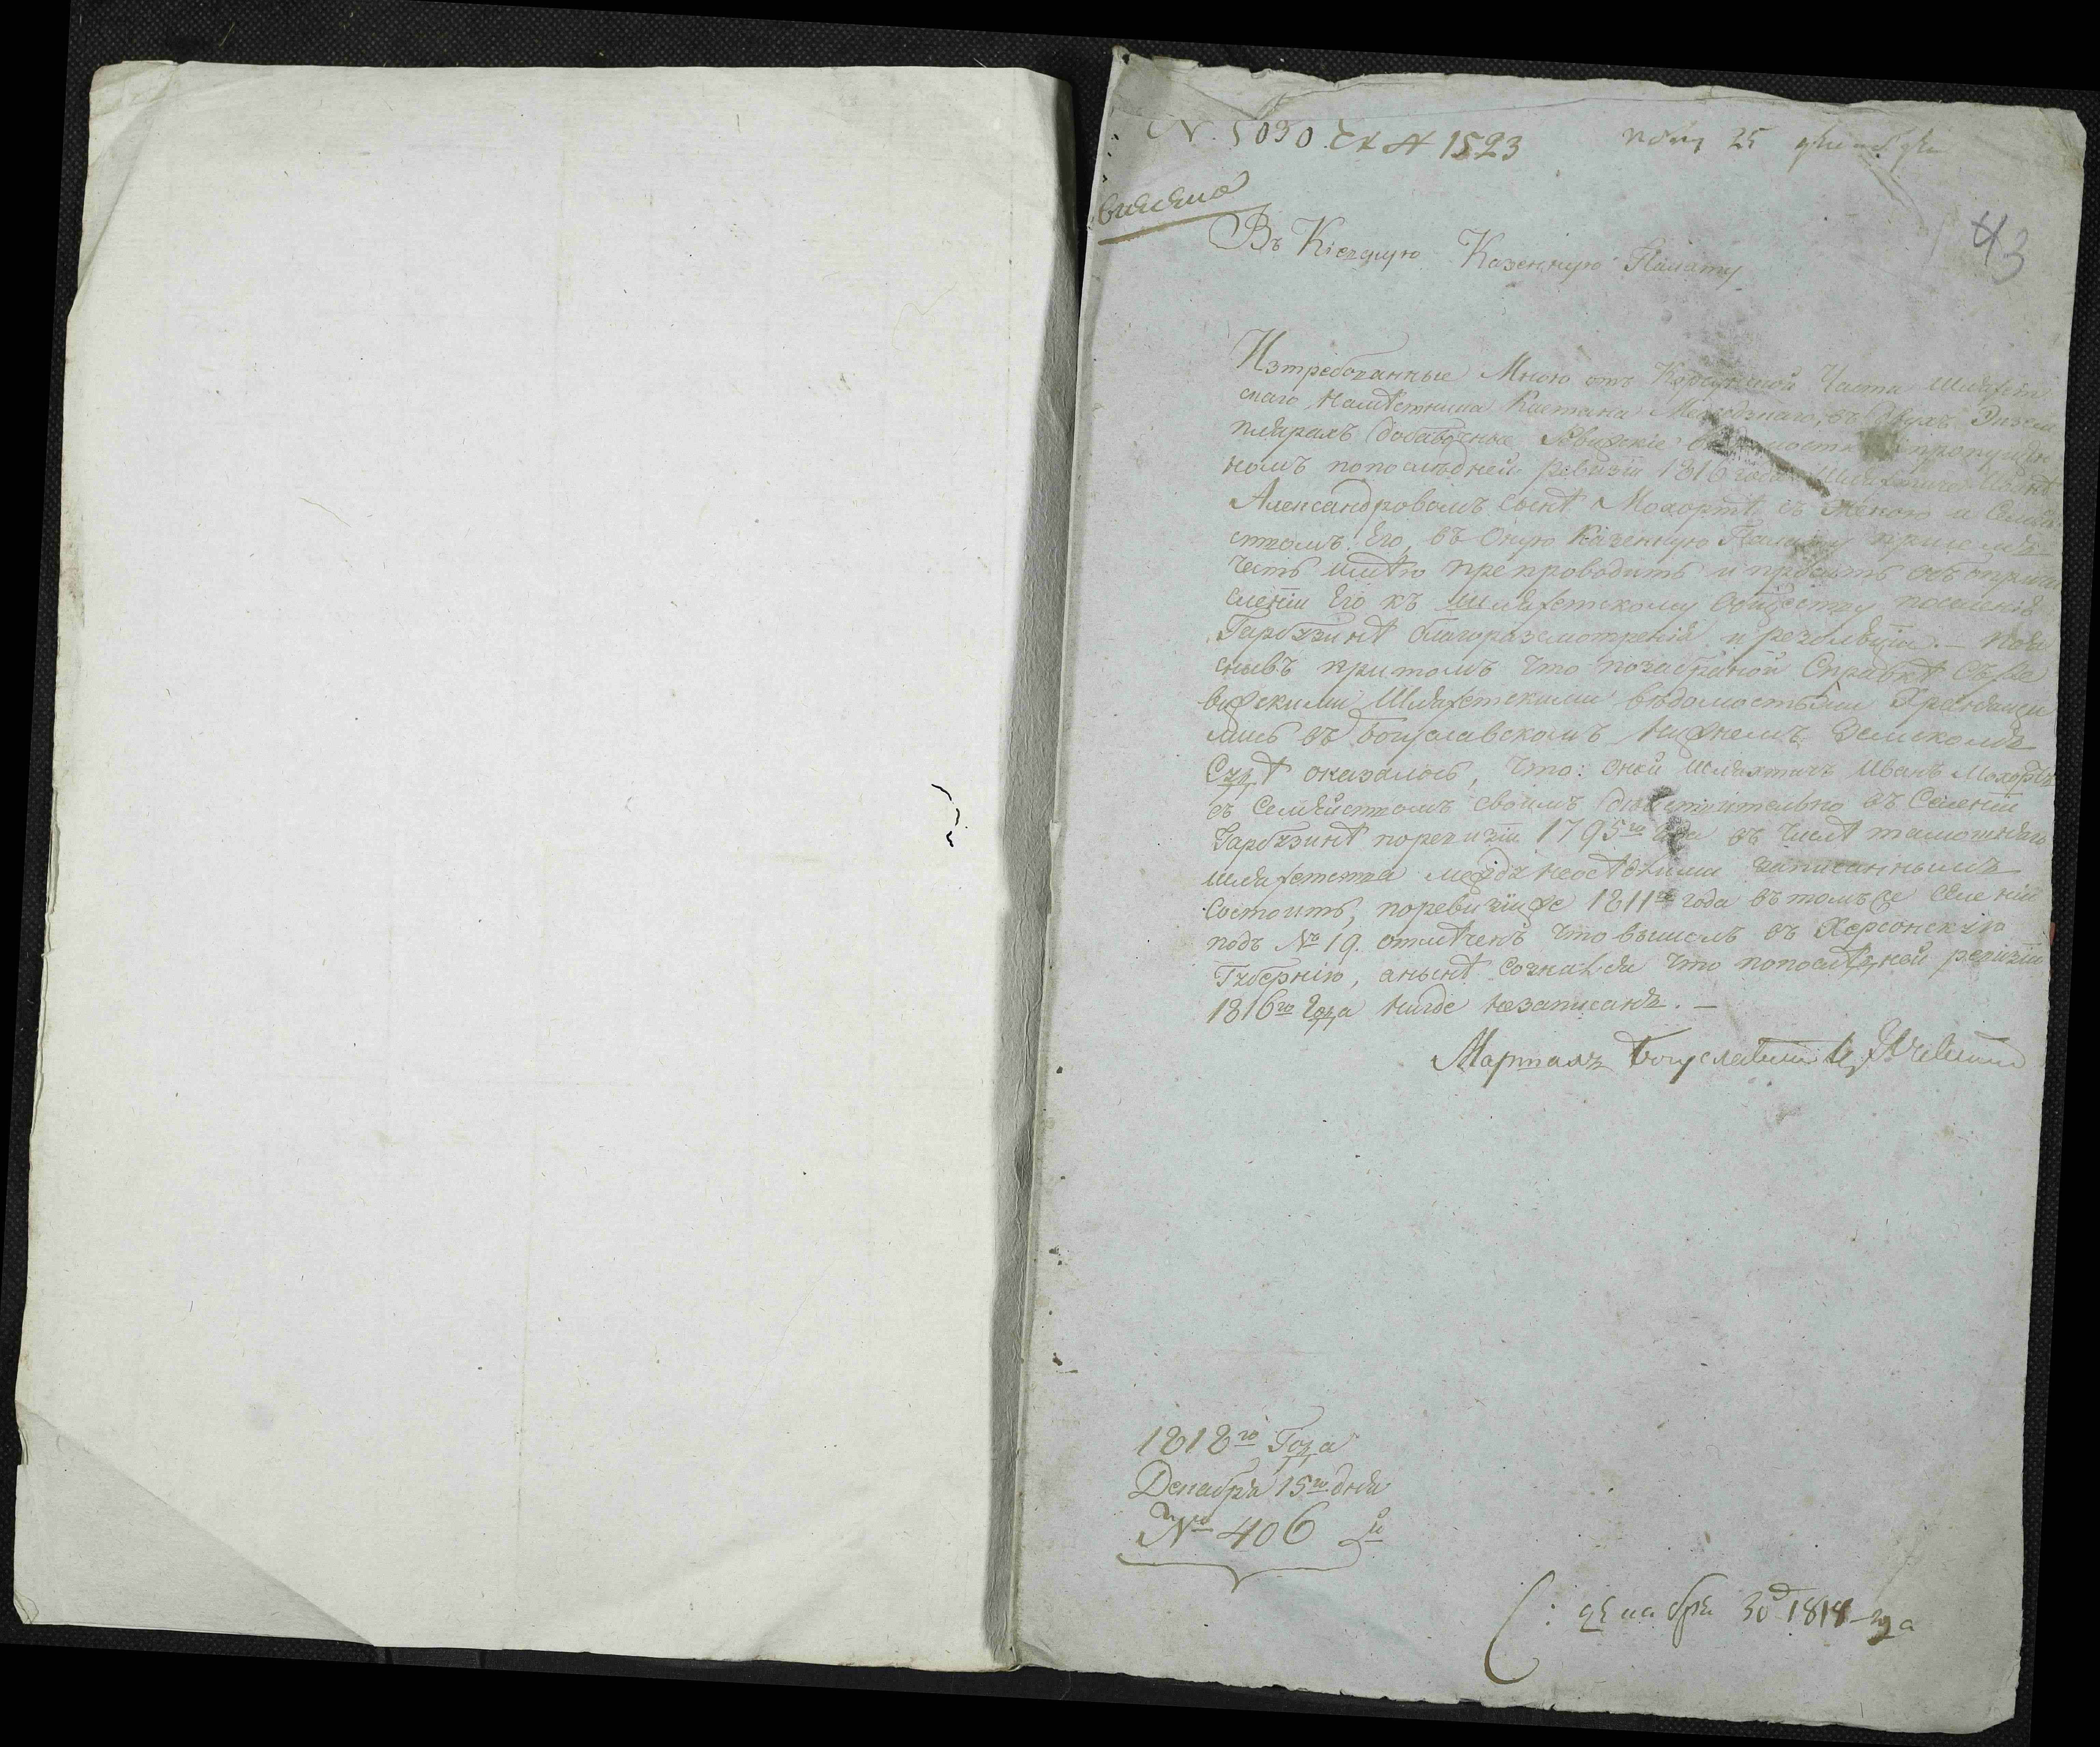 N. 5030. 1523 25
43
Въ Кіевскую Казенную Палату
Изтребованные Мною отъ Части Шляхет
скаго Намѣстника Каетана въ двухъ Экзем
плярахъ добавочные Ревизкіе о пропущен
номъ попослѣдней ревизіи 1816 года Шляхтиче Иванѣ
Александровомъ сынѣ Мохортѣ съ женою и Семѣй
ствомъ Его, въ Оную Казенную Палату при семъ
Честь имѣю препроводить и просить объ опричи
сленіи Его къ шляхетскому Обществу поселенія
Гарбузинѣ благоразсмотренія и резолюціи. — Поя
снывъ притомъ что позабраной Справкѣ Съ Ре
визскими Шляхетскими вѣдомостьми Хранящи
мись въ Богуславскомъ Нижнемъ Земскомъ
Судѣ оказалось, Что: оной шляхтичъ Иванъ Мохортъ
съ Семѣйствомъ своимъ дѣйствительно въ Селеніи
Гарбузинѣ поревизіи 1795го года въ числѣ тамошняго
шляхетства между неосѣдлими записаннымъ
состоитъ, поревизіи же 1811го года въ томъ же Селеніи
подъ № 19. отмѣченъ что вышелъ въ Херсонскую
Губернію, анынѣ что попослѣдней ревизіи
1816го Года нигде незаписанъ. —
Маршалъ Богуславскій
1818го Года
Декабря 15го дня
№ 406
декабря 30 1818 года